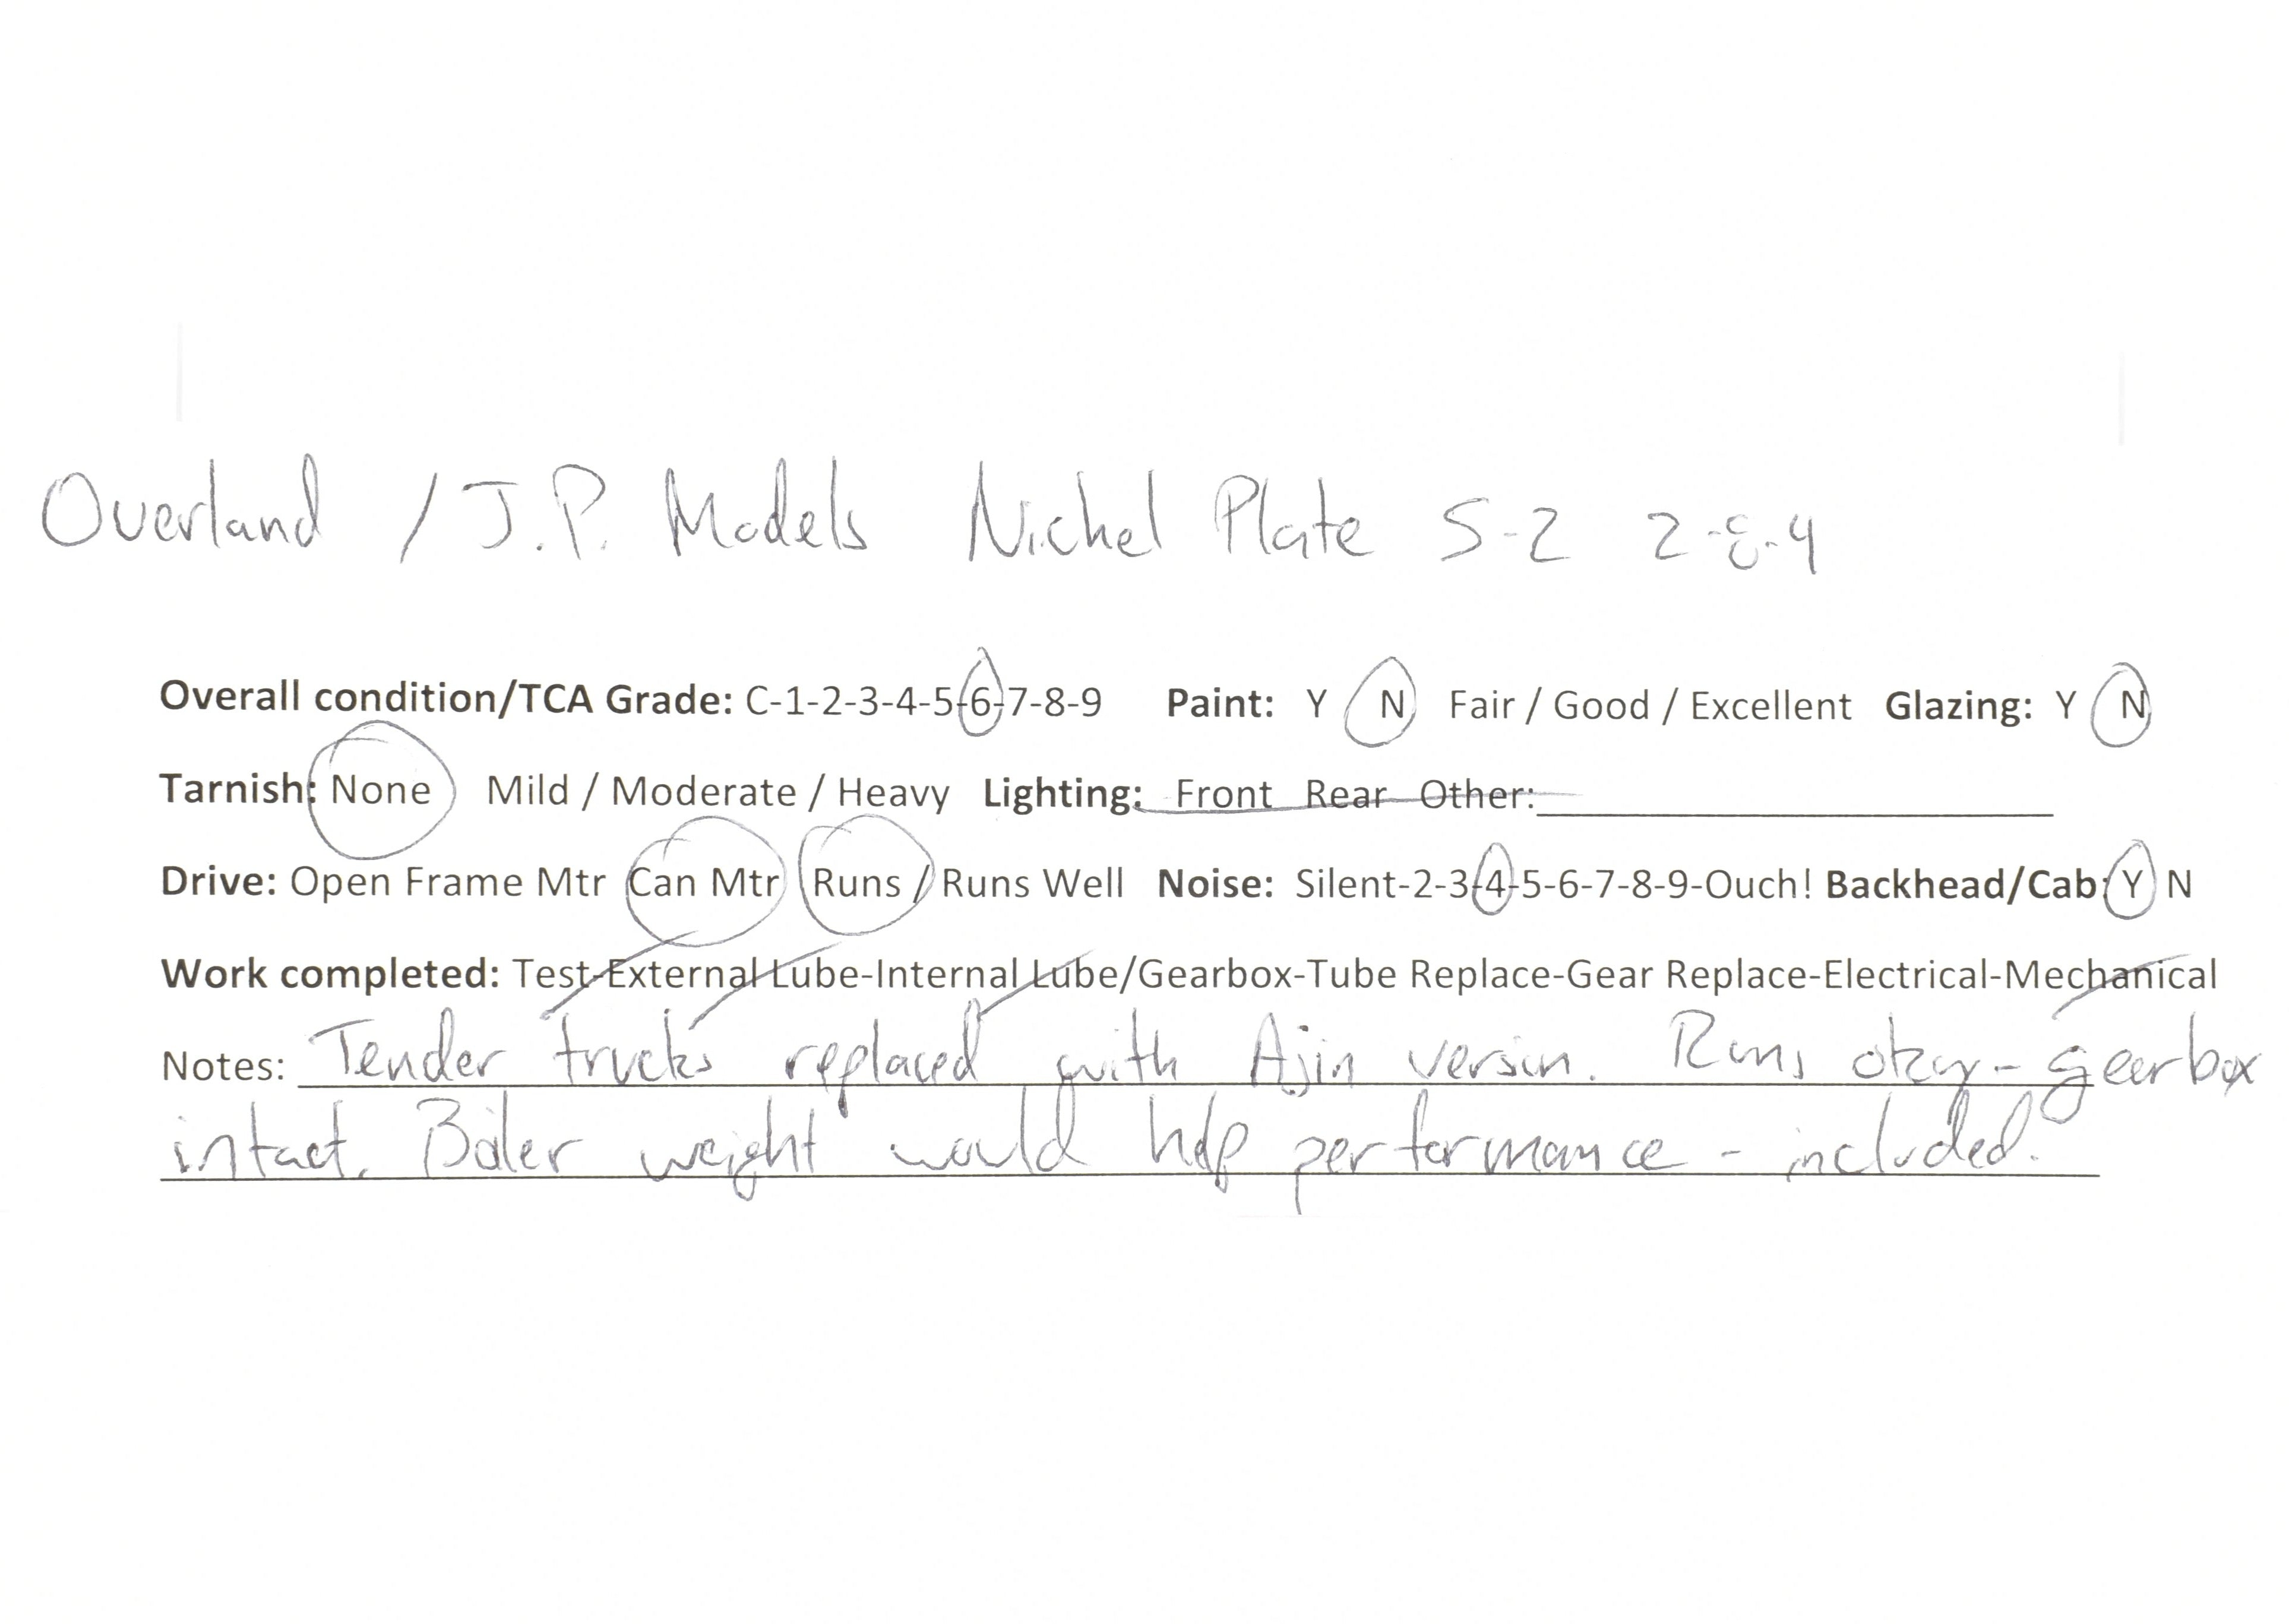 Overland / J.P. Models Nickel Plate S-2 2-8-4
Overall condition/TCA Grade: C-1-2-3-4-5-6-7-8-9 Paint: Y N Fair / Good / Excellent Glazing: Y N
Tarnish: None Mild / Moderate / Heavy Lighting: Front Rear Other:
Drive: Open Frame Mtr Can Mtr Runs / Runs Well Noise: Silent-2-3-4-5-6-7-8-9-Ouch! Backhead/Cab: Y N
Work completed: Test-External Lube-Internal Lube/Gearbox-Tube Replace-Gear Replace-Electrical-Mechanical
Notes: Tender trucks replaced with Ajin version. Runs okay - gearbox
intact. Boiler weight would help performance - included.